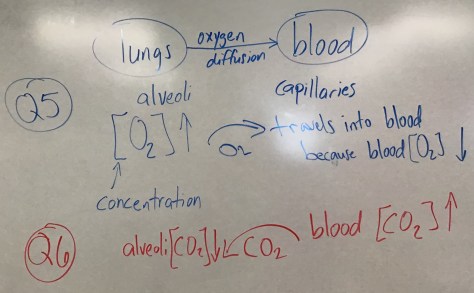 lungs oxygen diffusion blood
Q5
alveoli capillaries
[O₂]↑ O₂ → travels into blood
because blood [O₂] ↓
↑
concentration
Q6
alveoli [CO₂]↓ ← CO₂ blood [CO₂]↑